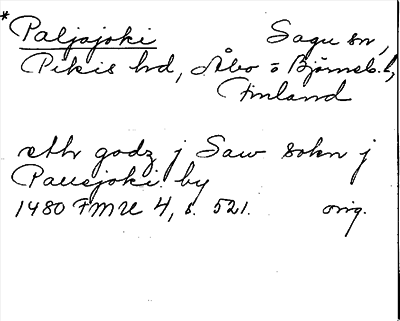 * Paljajoki Sagu sn,
Pikis hd, Åbo o Björneb. l,
Finland
etth godz j Saw sokn j
Paeesjoki by
1480 FMU 4, s. 521. orig.